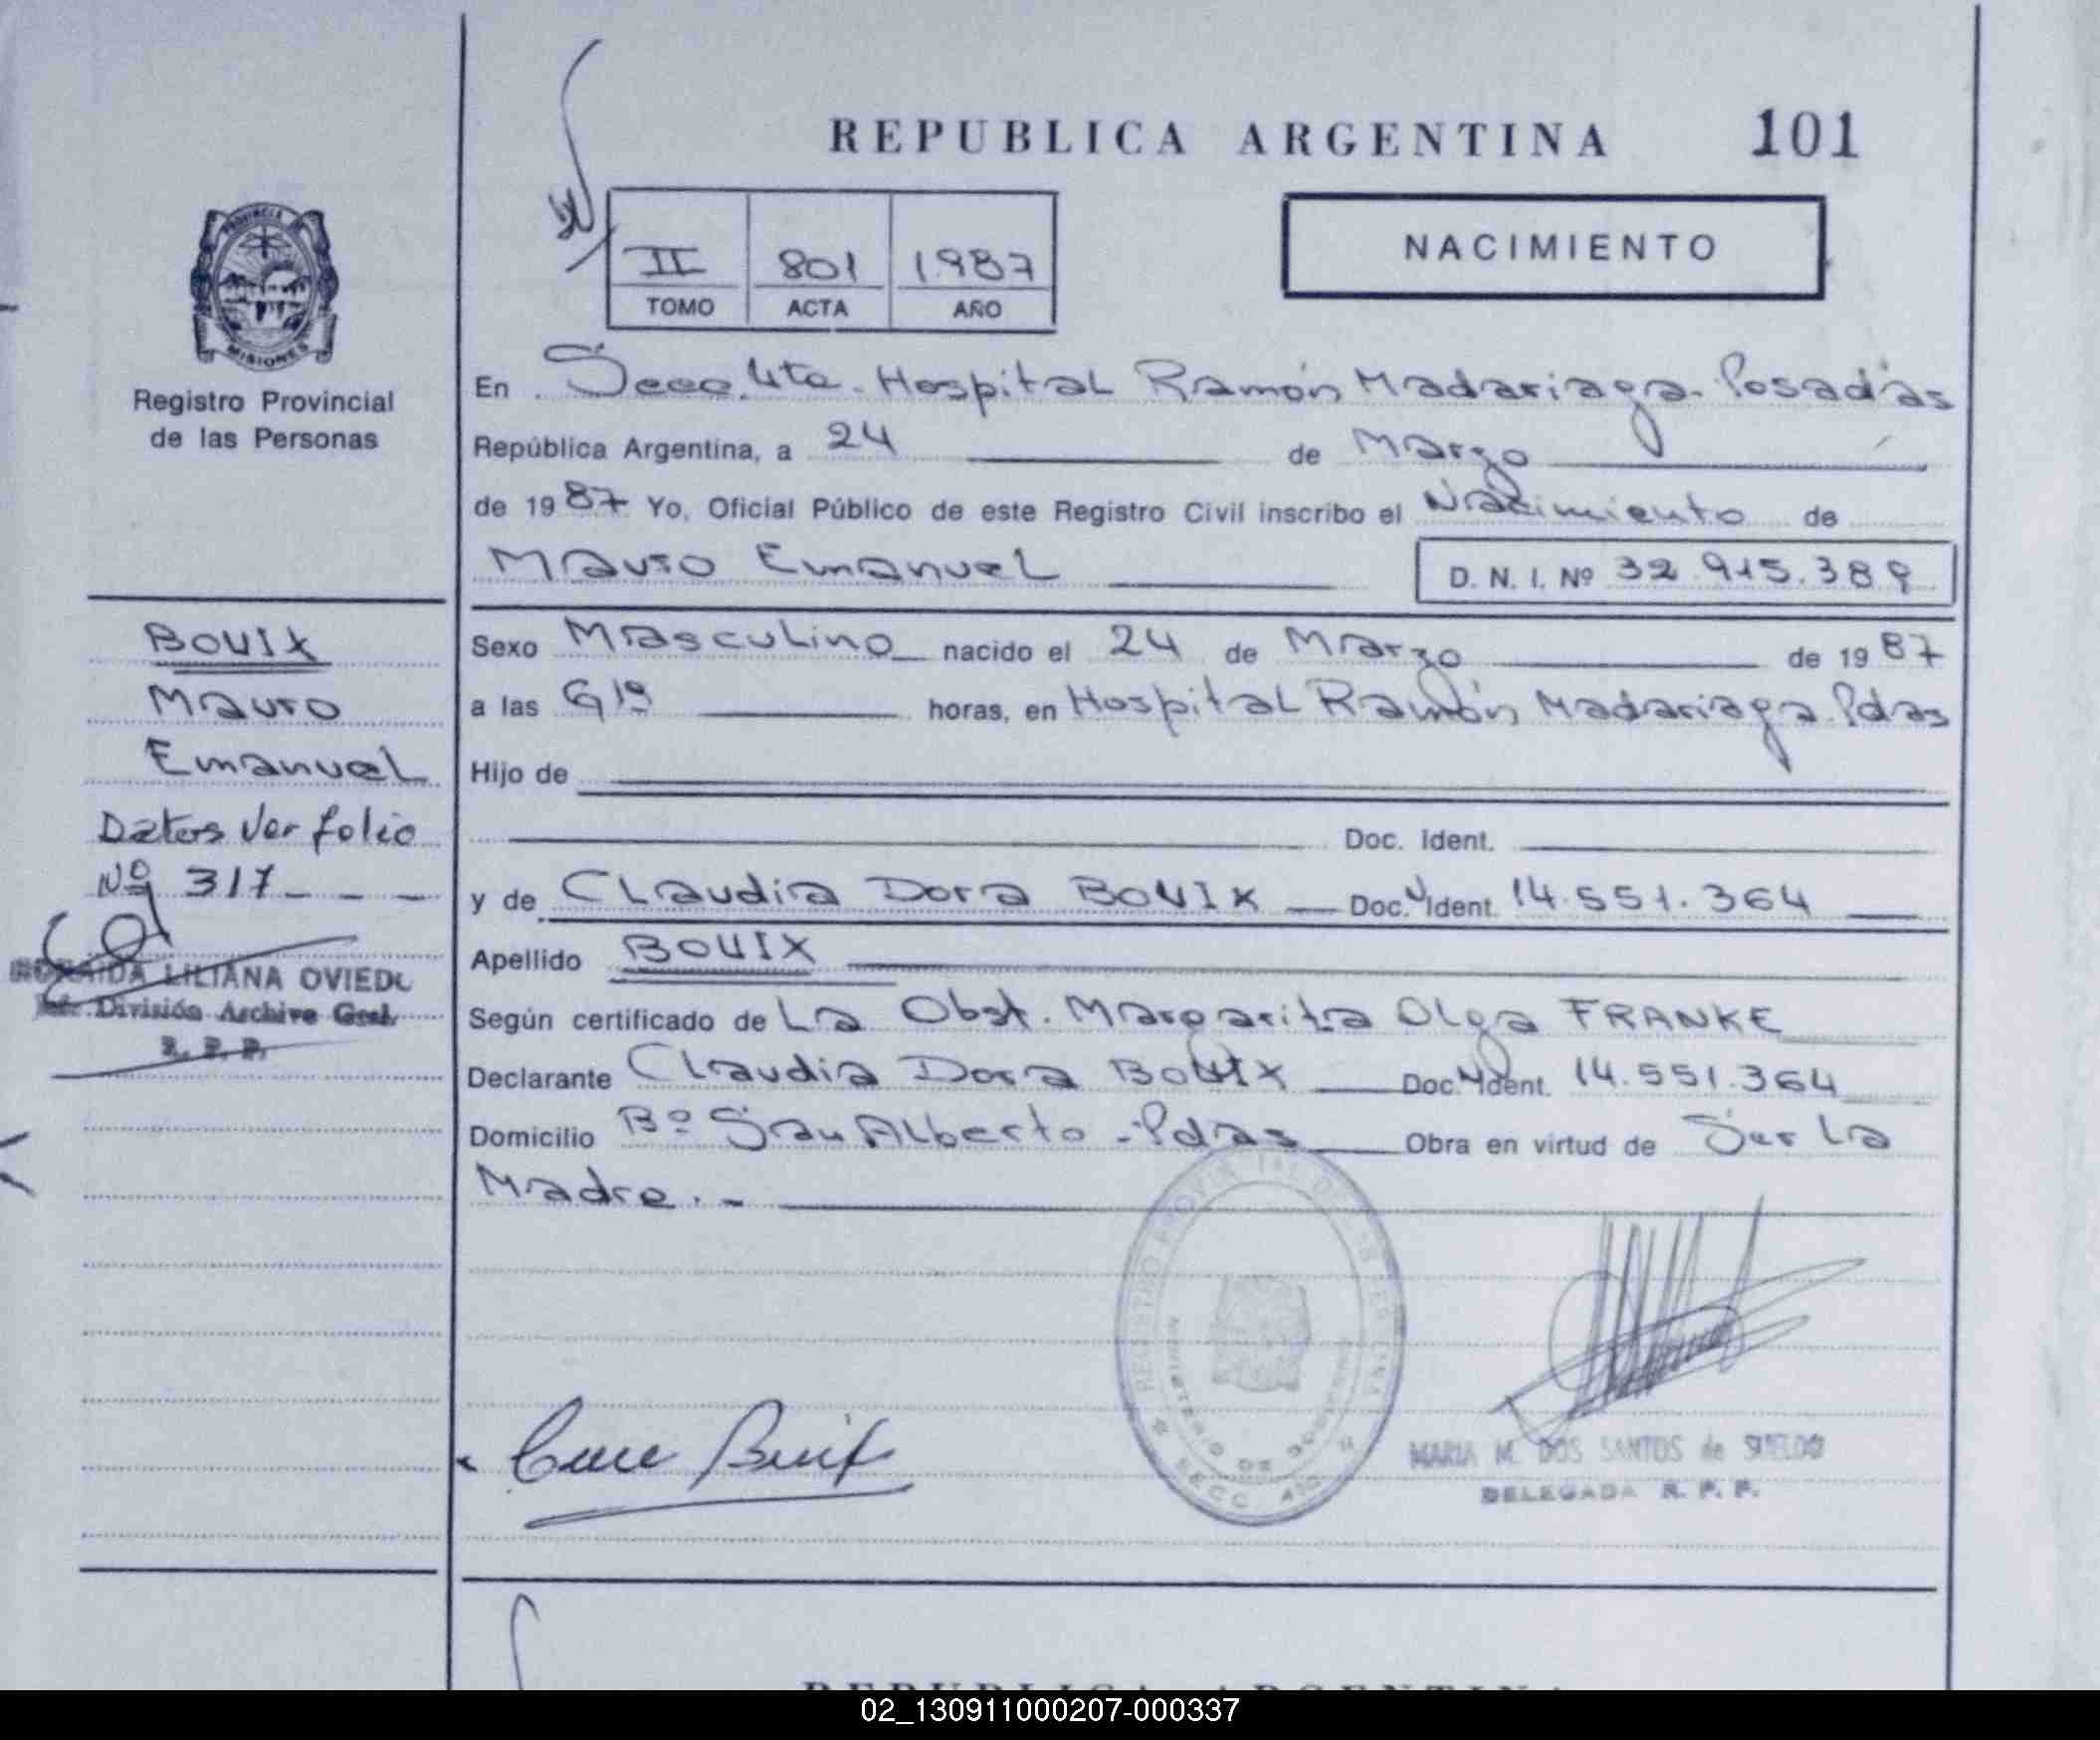 REPUBLICA ARGENTINA 101
II 801 1987
TOMO ACTA AÑO
NACIMIENTO
PROVINCIA DE
MISIONES
Registro Provincial
de las Personas
En Secc. 4ta. Hospital Ramón Madariaga. Posadas
República Argentina, a 24 de Marzo
de 1987 Yo, Oficial Público de este Registro Civil inscribo el Nacimiento de
Mauro Emanuel D. N. I. Nº 32.915.389
Sexo Masculino nacido el 24 de Marzo de 1987
a las horas, en Hospital Ramón Madariaga Pdas
Hijo de
Doc. Ident.
y de Claudia Dora BOUIX Doc. Ident. 14.551.364
Apellido BOUIX
Según certificado de La Obst. Margarita Olga FRANKE
Declarante Claudia Dora BOUIX Doc. Ident. 14.551.364
Domicilio Bº San Alberto - Pdas Obra en virtud de Ser La
Madre. -
BOUIX
Mauro
Emanuel
Datos Ver folio
Nº 317 - - -
LILIANA OVIEDO
División Archivo Gral.
R. P. P.
REGISTRO PROVINCIAL DE LAS PERSONAS
MINISTERIO DE GOBIERNO
SECC.
MARIA M. DOS SANTOS de SUELDO
DELEGADA R. P. P.
REPUBLICA ARGENTINA
02_130911000207-000337